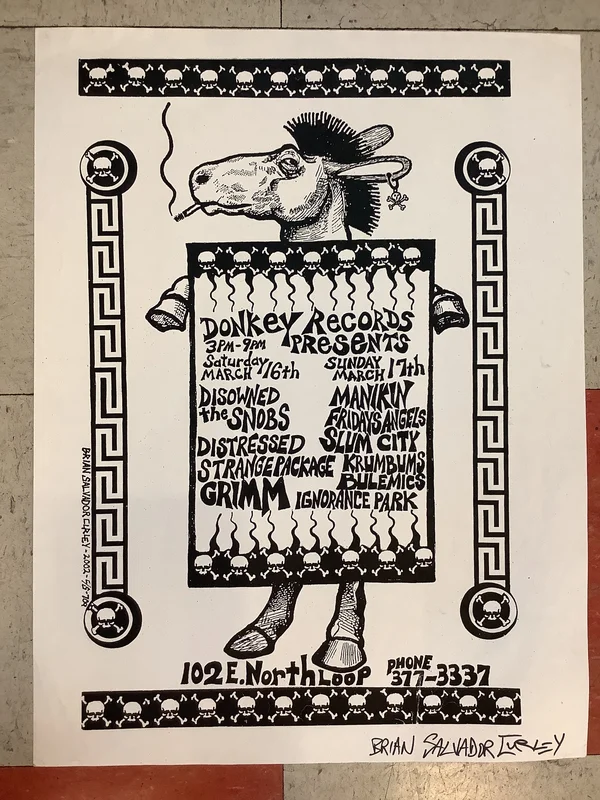 DONKEY RECORDS
PRESENTS
3PM-9PM
Saturday
MARCH 16th
DISOWNED
the SNOBS
DISTRESSED
STRANGE PACKAGE
GRIMM
SUNDAY
MARCH 17th
MANIKIN
FRIDAYS ANGELS
SLUM CITY
KRUMBUMS
BULEMICS
IGNORANCE PARK
102 E. North LOOP
PHONE
377-3337
BRIAN SALVADOR CURLEY - 2002
BRIAN SALVADOR CURLEY